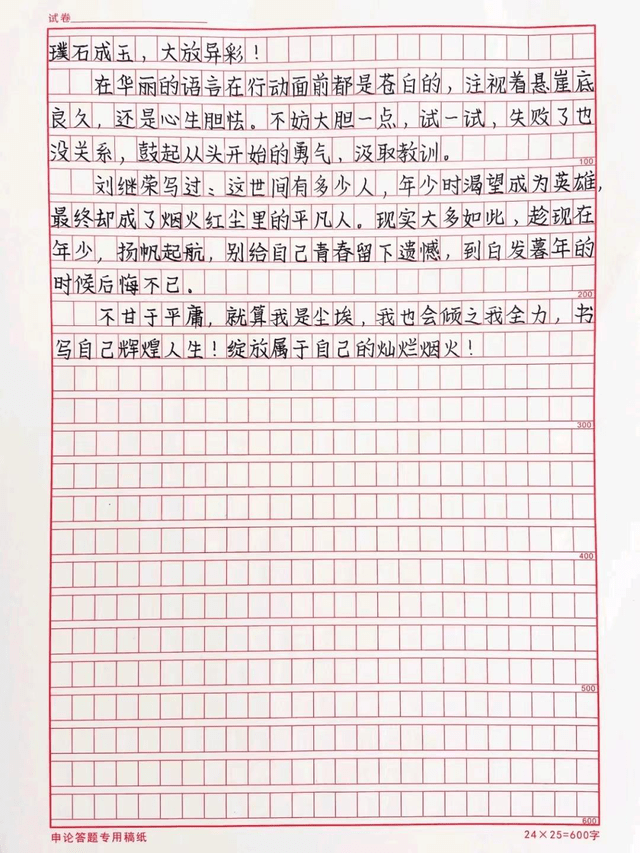 试卷
璞石成玉，大放异彩！
在华丽的语言在行动面前都是苍白的，注视着悬崖底
良久，还是心生胆怯。不妨大胆一点，试一试，失败了也
没关系，鼓起从头开始的勇气，汲取教训。
100
刘继荣写过：这世间有多少人，年少时渴望成为英雄，
最终却成了烟火红尘里的平凡人。现实大多如此，趁现在
年少，扬帆起航，别给自己青春留下遗憾，到白发暮年的
时候后悔不已。
200
不甘于平庸，就算我是尘埃，我也会倾之我全力，书
写自己辉煌人生！绽放属于自己的灿烂烟火！
300
400
500
600
申论答题专用稿纸
24×25=600字